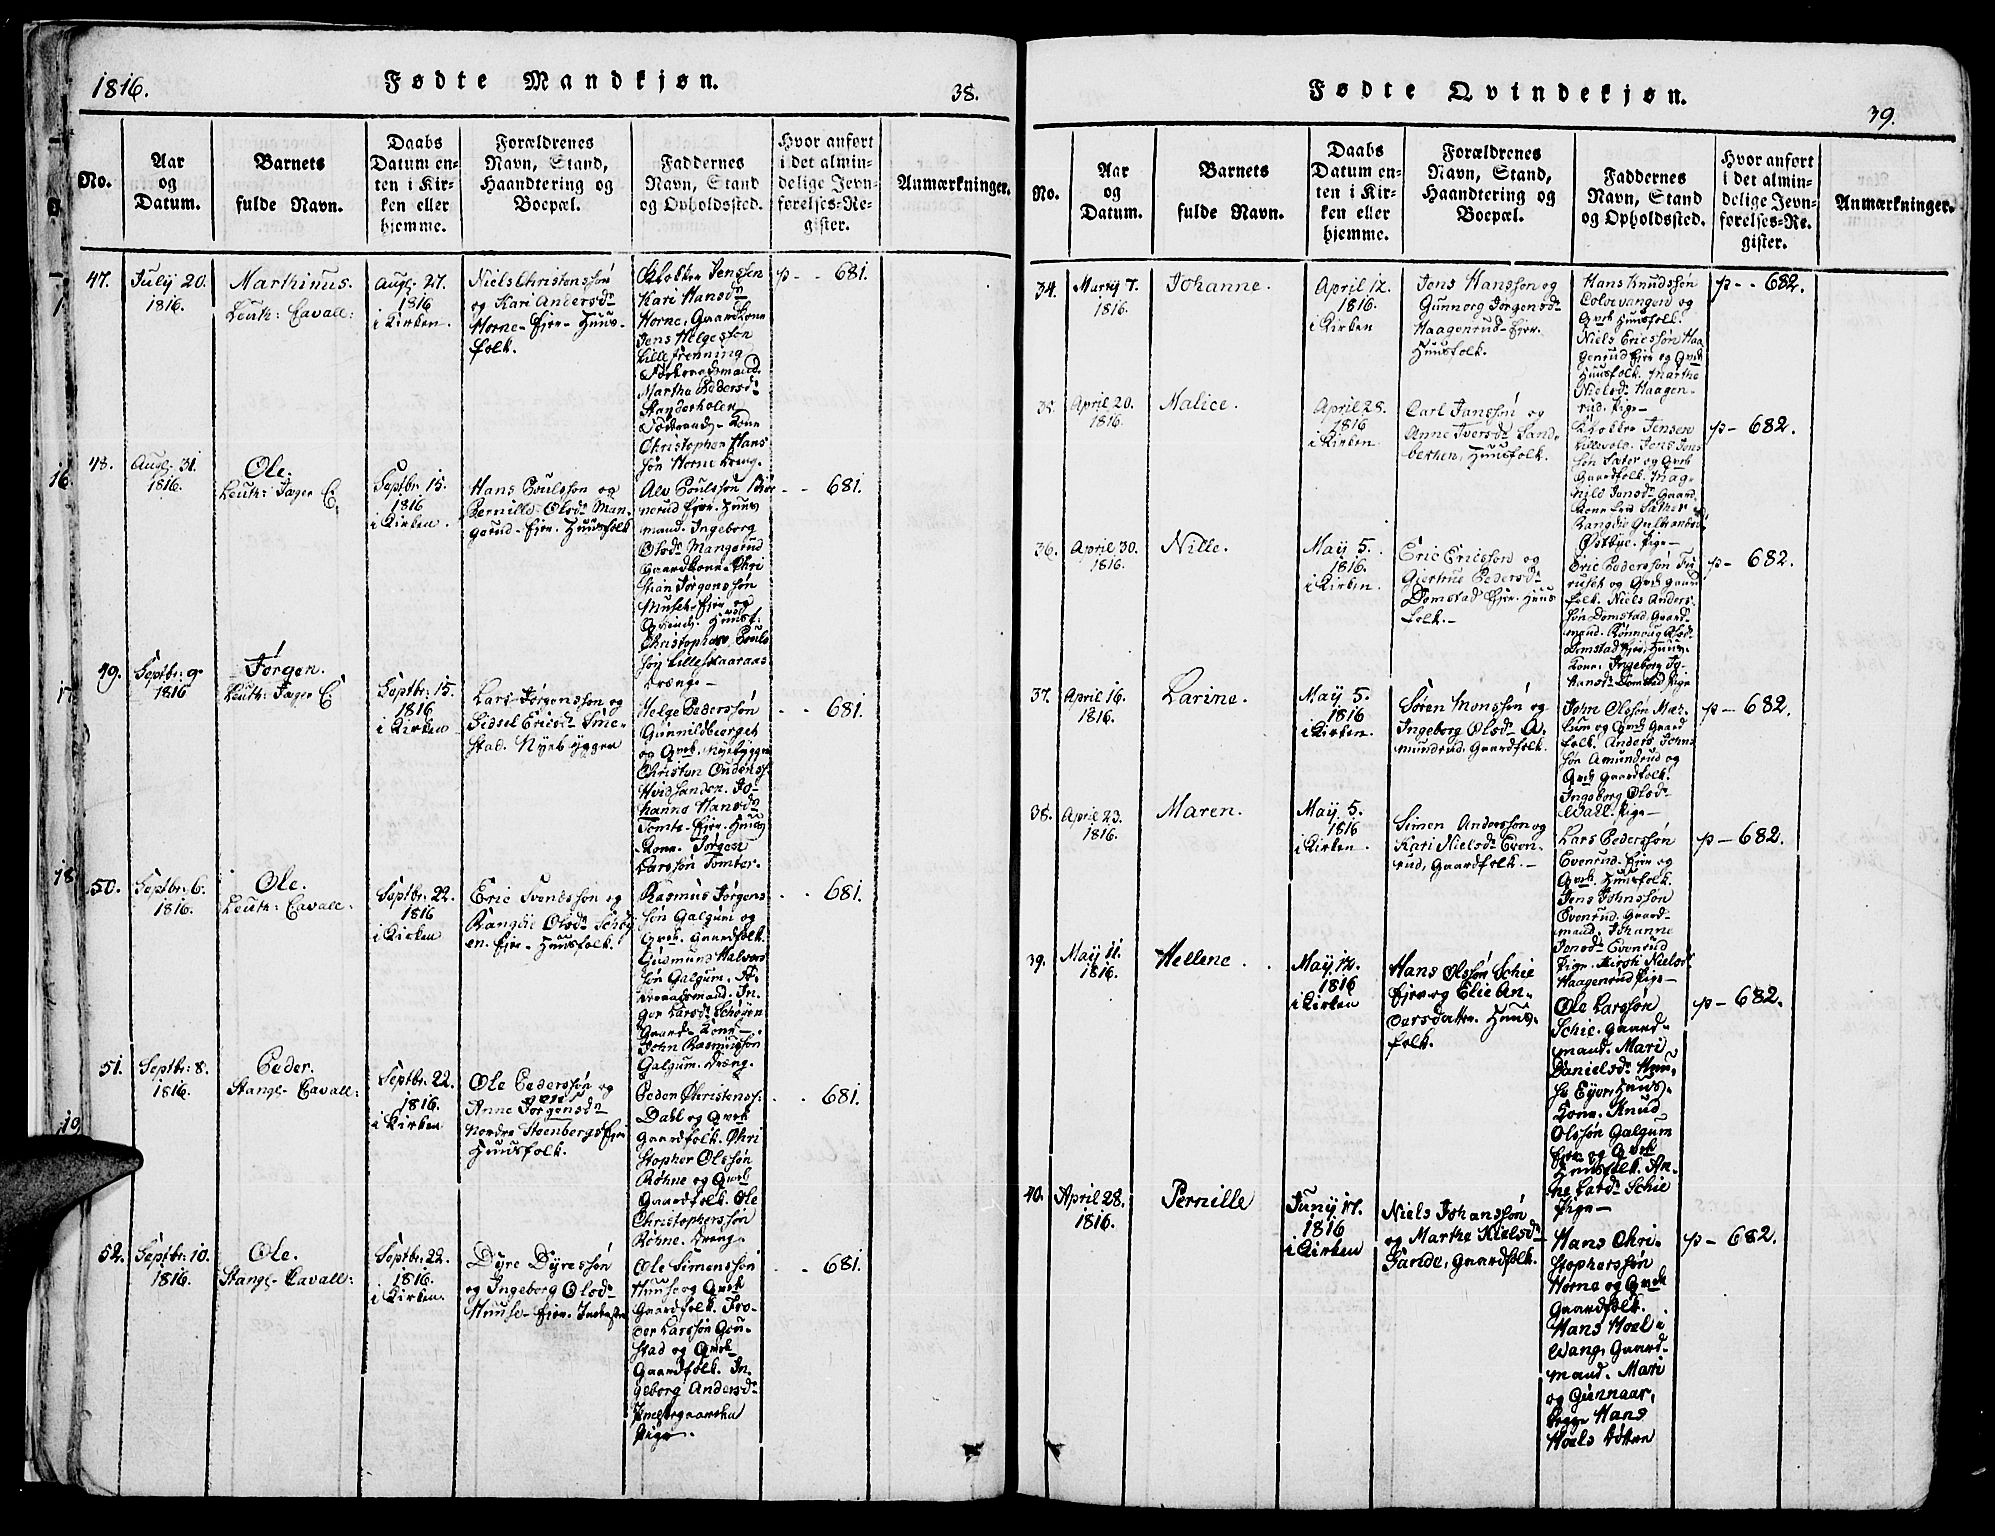 1816.
Fødte Mandkjøn.
38.
No.
Aar
og
Datum.
Barnets
fulde Navn.
Daabs
Datum en-
ten i Kir-
ken eller
hjemme.
Forældrenes
Navn, Stand,
Haandtering og
Boepæl.
Faddernes
Navn, Stand
og Opholdssted.
Hvor anført
i det almin-
delige Jevn-
førelses-Re-
gister.
Anmærkninger.
47.
July 20.
1816.
Marthinus.
Leuth: Cavall:
Augt. 27.
1816
i Kirken.
Niels Christenssøn
og Kari Andersdr
Horne- Ejer- Huus-
folk.
Klokker Jenssen
Kari Hansdr
Horne, Gaardkone
Jens Helgessøn
Lille Frenning
Martha Pedersdr
Christopher Hans
søn Horne Dreng.
p - - 681.
48.
Augt. 31.
1816.
Ole.
Leuth: Jager C.
Septbr. 15.
1816
i Kirken.
Hans Poulssøn og
Pernille Olsdr Man-
gerud- Ejer- Huusfolk
Alv Poulssøn
nerud Ejer- Huus
mand. Ingeborg
Olsdr Mangerud
Gaardkone. Chri
stian Jørgenssøn
Christopher Pouls
søn Lille Skaaraas
Drenge-
- - 681.
49.
Septbr: 9
1816
Jørgen.
Leuth: Jager C
Septbr: 15.
1816
i Kirken
Lars Jørgenssøn og
Sidsel Ericsdr Sme-
stad. Nyebygger
Helge Pederssøn
Gunnildberget
og Qvek. Nyebygger
Christen
Hvidsanden. Jo-
hanne Hansdr
Tomte- Ejer- Huus
Kone. Jørgen
Larssøn Tomter.
- - 681.
50.
Septbr: 6.
1816.
Ole.
Leuth: Cavall:
Septbr: 22.
1816
i Kirken
Eric Svendssøn og
Rangdie Olsdr Schøy
en. Ejer- Huusfolk.
Rasmus Jørgens
søn Galgum og
Qvek. Gaardfolk.
Gudmund Halvors
søn Galgum.
In-
ger Larsdr Schøyen
Gaard- Kone-.
John Rasmussøn
Galgum. Dreng.
- - 681.
51.
Septbr: 8.
1816.
Peder.
Stange- Cavall:
Septbr: 22.
1816.
i Kirken
Ole Pederssøn og
Anne Jørgensdr
Nordre Steenberg Ejer
Huusfolk.
Peder Christenss:
Dahl og Qvek
Gaardfolk. Chri
stopher Olssøn
Røhne og Qvek
Gaardfolk. Ole
Christopherssøn
Røhne. Dreng.
- - 681.
52.
Septbr: 10.
1816.
Ole.
Stange- Cavall:
Septbr: 22.
1816.
i Kirken.
Dyre Dyressøn
og Ingeborg Olsdr
Huuse- Ejer- Inderster
Ole Simenssøn
Huuse og Qvek
Gaardfolk. Pe-
der Larssøn Gru-
stad og Qvek
Gaardfolk. In-
geborg Andersdr
Pige.
- - 681.
Fødte Qvindekjøn.
39.
No.
Aar
og
Datum.
Barnets
fulde Navn.
Daabs
Datum en-
ten i Kir-
ken eller
hjemme.
Forældrenes
Navn, Stand,
Haandtering og
Boepæl.
Faddernes
Navn, Stand
og Opholdssted.
Hvor anført
i det almin-
delige Jevn-
førelses-Re-
gister.
Anmærkninger.
34.
Marty 7.
1816.
Johanne.
April 12.
1816.
i Kirken
Jens Hanssøn og
Gunnorg Jørgensdr
Haagenrud- Ejer-
Huusfolk.
Hans Knudssøn
Dolorvangen og
Qvek Huusfolk.
Niels Ericssøn Haa
genrud Ejer og Qvek
Huusfolk. Marthe
Nielsdr Haagen-
rud. Pige-
p - - 682.
35.
April 20.
1816.
Malice.
April 28.
1816
i Kirken
Carl Janssøn og
Anne Iversdr Sand-
berhen, Huusfolk.
Klokker Jensen
Lillevold. Jens Jens
søn Sæter og Qvek
Gaardfolk. Mag-
nild Jensdr Gaard
Kone
Rangdie
Østbye. Pige-
p - 682.
36.
April 30.
1816.
Nille.
May 5.
1816.
i Kirken.
Eric Ericssøn og
Giertrue Pedersdr
Domstad Ejer- Huus
folk.-
Eric Pederssøn Fu
ruset og Qvek Gaard
folk. Niels Anders-
søn Domstad. Gaard
mand. Rønnoug Olsdr
Domstad Ejer, Huus-
Kone. Ingeborg Jo-
hansdr Domstad Pige
p - 682.
37.
April 16.
1816.
Larine.
May 5.
1816
i Kirken.
Søren Monssøn og
Ingeborg Olsdr A-
mundrud, Gaardfolk.
John Olssøn Mæ-
lum og Qvek Gaard
folk. Anders Johns
søn Amundrud og
Qvek Gaardfolk.
Ingeborg Olsdr
Wall. Pige-
p - 682.
38.
April 23.
1816.
Maren.
May 5.
1816
i Kirken.
Simen Anderssøn og
Kari Nielsdr Even-
rud, Gaardfolk.-
Lars Pederssøn
Evenrud. Ejer og
Qvek. Huusfolk.
Jens Johnssøn
Evenrud. Gaard-
mand. Johanne
Jensdr Evenrud
Pige. Kirsti Nielsdr
Haagenrud Pige-
p - 682.
39.
May 11.
1816.
Hellene.
May 12.
1816
i Kirken
Hans Olssøn Schie
Ejer og Elie An-
dersdatter. Huus-
folk.
Ole Larssøn
Schie. Gaard-
mand. Mari
Danielsdr Huu-
se Ejer. Huus-
Kone. Knud
Olssøn Galgum
Ejer og Qvek
Huusfolk. An-
ne Larsdr Schie
Pige-
p - 682.
40.
April 28.
1816.
Pernille
Juny 17.
1816
i Kirken
Niels Johanssøn
og Marthe Nielsdr
Sande, Gaardfolk.
Hans Chri-
stopherssøn
Horne og Qvek
Gaardfolk.
Hans Hoel-
Wang, Gaard-
mand. Mari
og Gunnaar,
begge Hans
Hoels Døttre
p - 682.
16.
17.
18
19